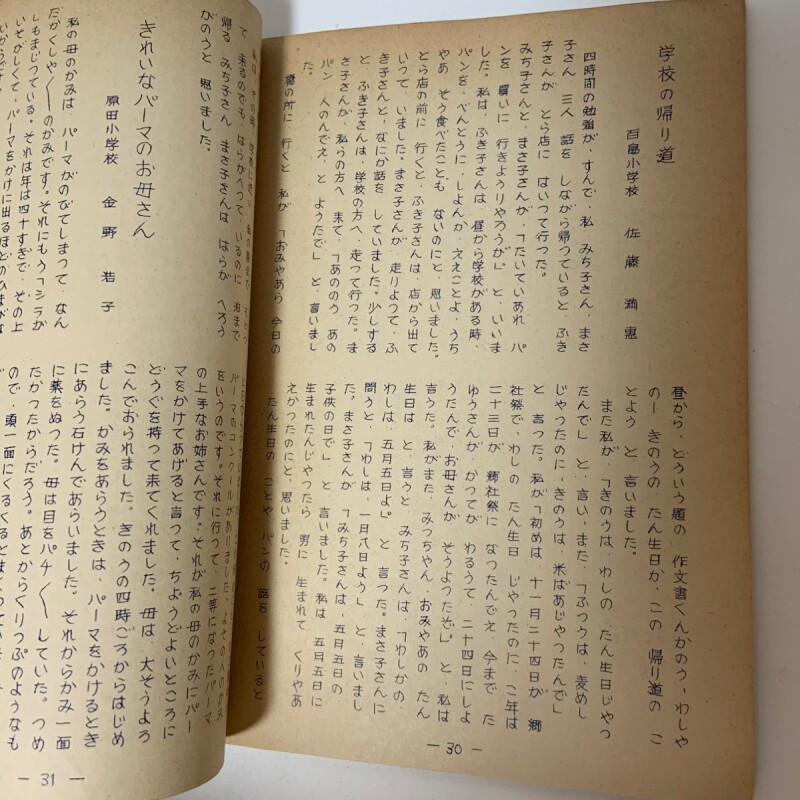 学校の帰り道
百島小学校 佐藤 満恵
四時間の勉強が、すんで、私 みち子さん、まさ
子さん 三人 話を しながら帰っていると、ふき
子さんが、とら店に はいつて行つた。
みち子さんと、まさ子さんが、「たいていあれ、パ
ンを 買いに 行きようりやろうが」と、いいま
した。私は、ふき子さんは、昼から学校がある時、
パンを、べんとうに、しよんか、ええことよ、うち
やあ そう食べたことも ないのにと、思いました。
とら店の前に 行くと、ふき子さんは、店から出て
いつて、いました。まさ子さんが、走りよつて、ふ
き子さんと、なにか話を していました。少しする
と、ふき子さんは、学校の方へ、走つて行つた。ま
さ子さんが、私らの方へ 来て、「あののう あの
パン 人のんでえ、と ようたで」と、言いまし
た。
の前に 行くと 私が 「おみやあら 今日の
昼から、どういう題の 作文書くんかのう、わしや
のー きのうの、たん生日か、この 帰り道の こ
とよう」と、言いました。
また私が、「きのうは、わしの たん生日じやつ
たんで」と、言い、また、「ふつうは、麦めし
じやつたのに、きのうは、米ばあじやつたんで」
と 言った。私が「初めは、十一月二十四日が 郷
社祭で、わしの たん生日 じやつたのに、こ年は
二十三日が 郷社祭に なつたんでえ、今まで た
ゆうさんが、かつてが わるうて、二十四日にしよ
うだんで、お母さんが そうようたぞ」と、私は
言うた。私がまた、みつちやん、おみやあの たん
生日は と、言うと、みち子さんは、「わしかの
わしは、五月五日よ」 と 言った。まさ子さんに
問うと、「わしは、一月八日よう」と、言いまし
た。まさ子さんが 「みち子さんは、五月五日の
子供の日で」と 言いました。私は 五月五日に
生まれたんじやつたら 男に 生まれて くりやあ
えかつたのにと、思いました。
たん生日の ことや パンの 話を していると
― 30 ―
て 来るのでも、はらがへつて、いるのに 泊まで
帰る みち子さん まさ子さんは はらが へろう
がのうと 思いました。
きれいなパーマのお母さん
原田小学校 金野 若子
私の母のかみは、パーマがのびてしまって、なん
だかくしや〱のかみです。それにもう「シラが
」もまじつている。それは年は四十すぎで、その上
いそがしくて、パーマをかけに出るほどのひまがな
いからです。
パーマのコンクールがありました。
をいうのです。それに行つて、二等になつたパーマ
の上手なお姉さんです。それが私の母のかみにパー
マをかけてあげると言つて、ちようどよいところに
どうぐを持って来てくれました。母は、大そうよろ
こんでおられました。きのうの四時ごろからはじめ
ました。かみをあらうときは、パーマをかけるとき
にあらう石けんであらいました。それからかみ一面
に薬をぬつた。母は目をパチ〱していた。つめ
たかつたからだろう。あとからくりつぷのようなも
ので、頭一面にくるくるとまいていき
― 31 ―